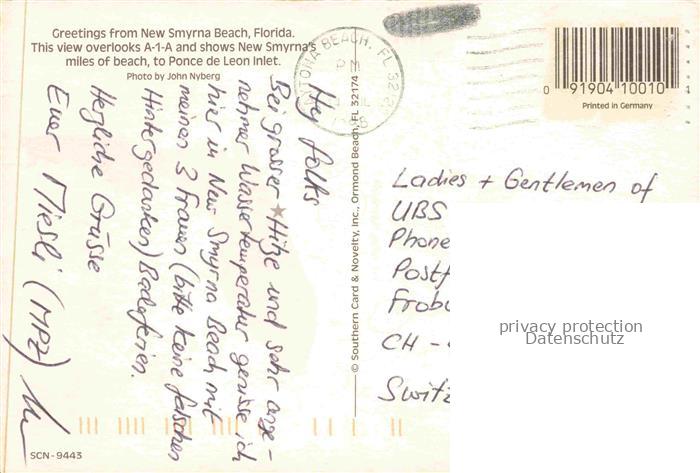 Greetings from New Smyrna Beach, Florida.
This view overlooks A-1-A and shows New Smyrna's
miles of beach, to Ponce de Leon Inlet.
Photo by John Nyberg
Hy folks
Bei grosser Hitze und sehr ange-
nehmer Wassertemperatur geniesse ich
hier in New Smyrna Beach mit
meinen 3 Frauen (bitte keine falschen
Hintergedanken) Badeferien.
Herzliche Grüsse
Euer Miesli (MPZ)
SCN-9443
© Southern Card & Novelty, Inc., Ormond Beach, FL 32174
DAYTONA BEACH, FL 32
PM
0 91904 10010
Printed in Germany
Ladies + Gentlemen of
UBS
Phone
Postf
Frobu
CH -
Switz
privacy protection
Datenschutz